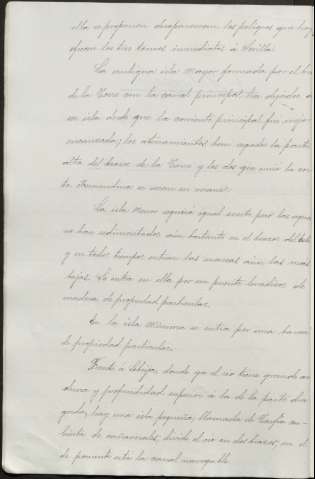 ella se proponen desaparezcan los peligros que hoy
ofrecen las tres tomas inmediatas á Sevilla.
La antigua isla Mayor formada por el brazo
de la Torre con la canal principal, ha dejado de
ser isla desde que la corriente principal fué
los aterramientos han cegado la parte
alta del brazo de la Torre y los dos que unía la corta
Fernandina se secan en verano.
La isla Menor seguirá igual suerte pero las aguas
no han sedimentado aún bastante en el brazo del Este
y en todo tiempo entran las mareas aún las más
bajas. Se entra en ella por un puente levadizo de
madera de propiedad particular.
En la isla Mínima se entra por una barca
de propiedad particular.
Frente á Lebrija, donde ya el río tiene grande an-
chura y profundidad superior á la de la parte dra-
gada, hay una isla pequeña, llamada de Tarfia cu-
bierta de cañaverales, divide el río en dos brazos, en el
de poniente está la canal navegable